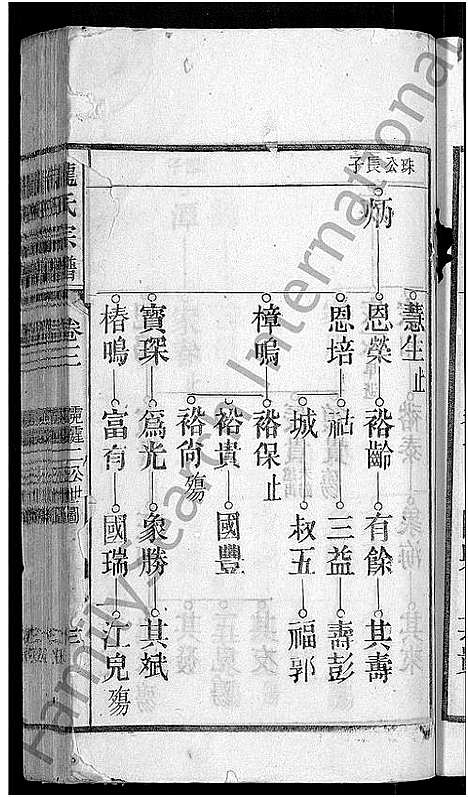 珠公長子
炳
慧生止
恩榮 裕齡 有餘 其壽
恩培 祜 三益 壽彭
城 叔五 福郭
樟鳴 裕保止
裕貴 國豐
裕尚殤
寶琛 爲光 象勝 其斌
椿鳴 富有 國瑞 江兒殤
龍氏宗譜 卷三 霓霆二公世圖 三
FamilySearch International